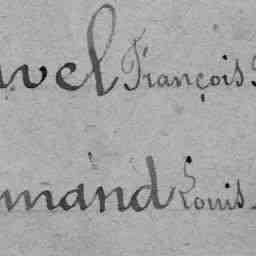 uvel François
mand Louis